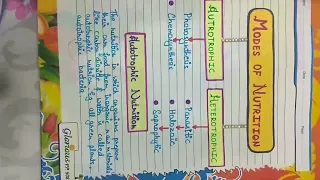 MODES OF NUTRITION
AUTROTROPHIC
HETEROTROPHIC
• Photosynthesis
• Chemosynthesis
• Parasitic
• Holozoic
• Saprophytic
Autotrophic Nutrition
The nutrition in which organisms prepare
their own food from inorganic raw materials
like carbon dioxide & water is called
autotrophic nutrition. Eg: all green plants,
autotrophic bacteria.
Glorious